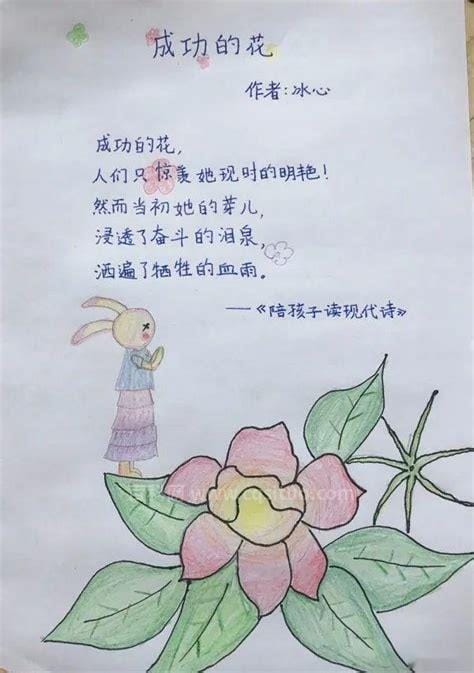 成功的花
作者:冰心
成功的花,
人们只惊羡她现时的明艳!
然而当初她的芽儿,
浸透了奋斗的泪泉,
洒遍了牺牲的血雨。
——《陪孩子读现代诗》